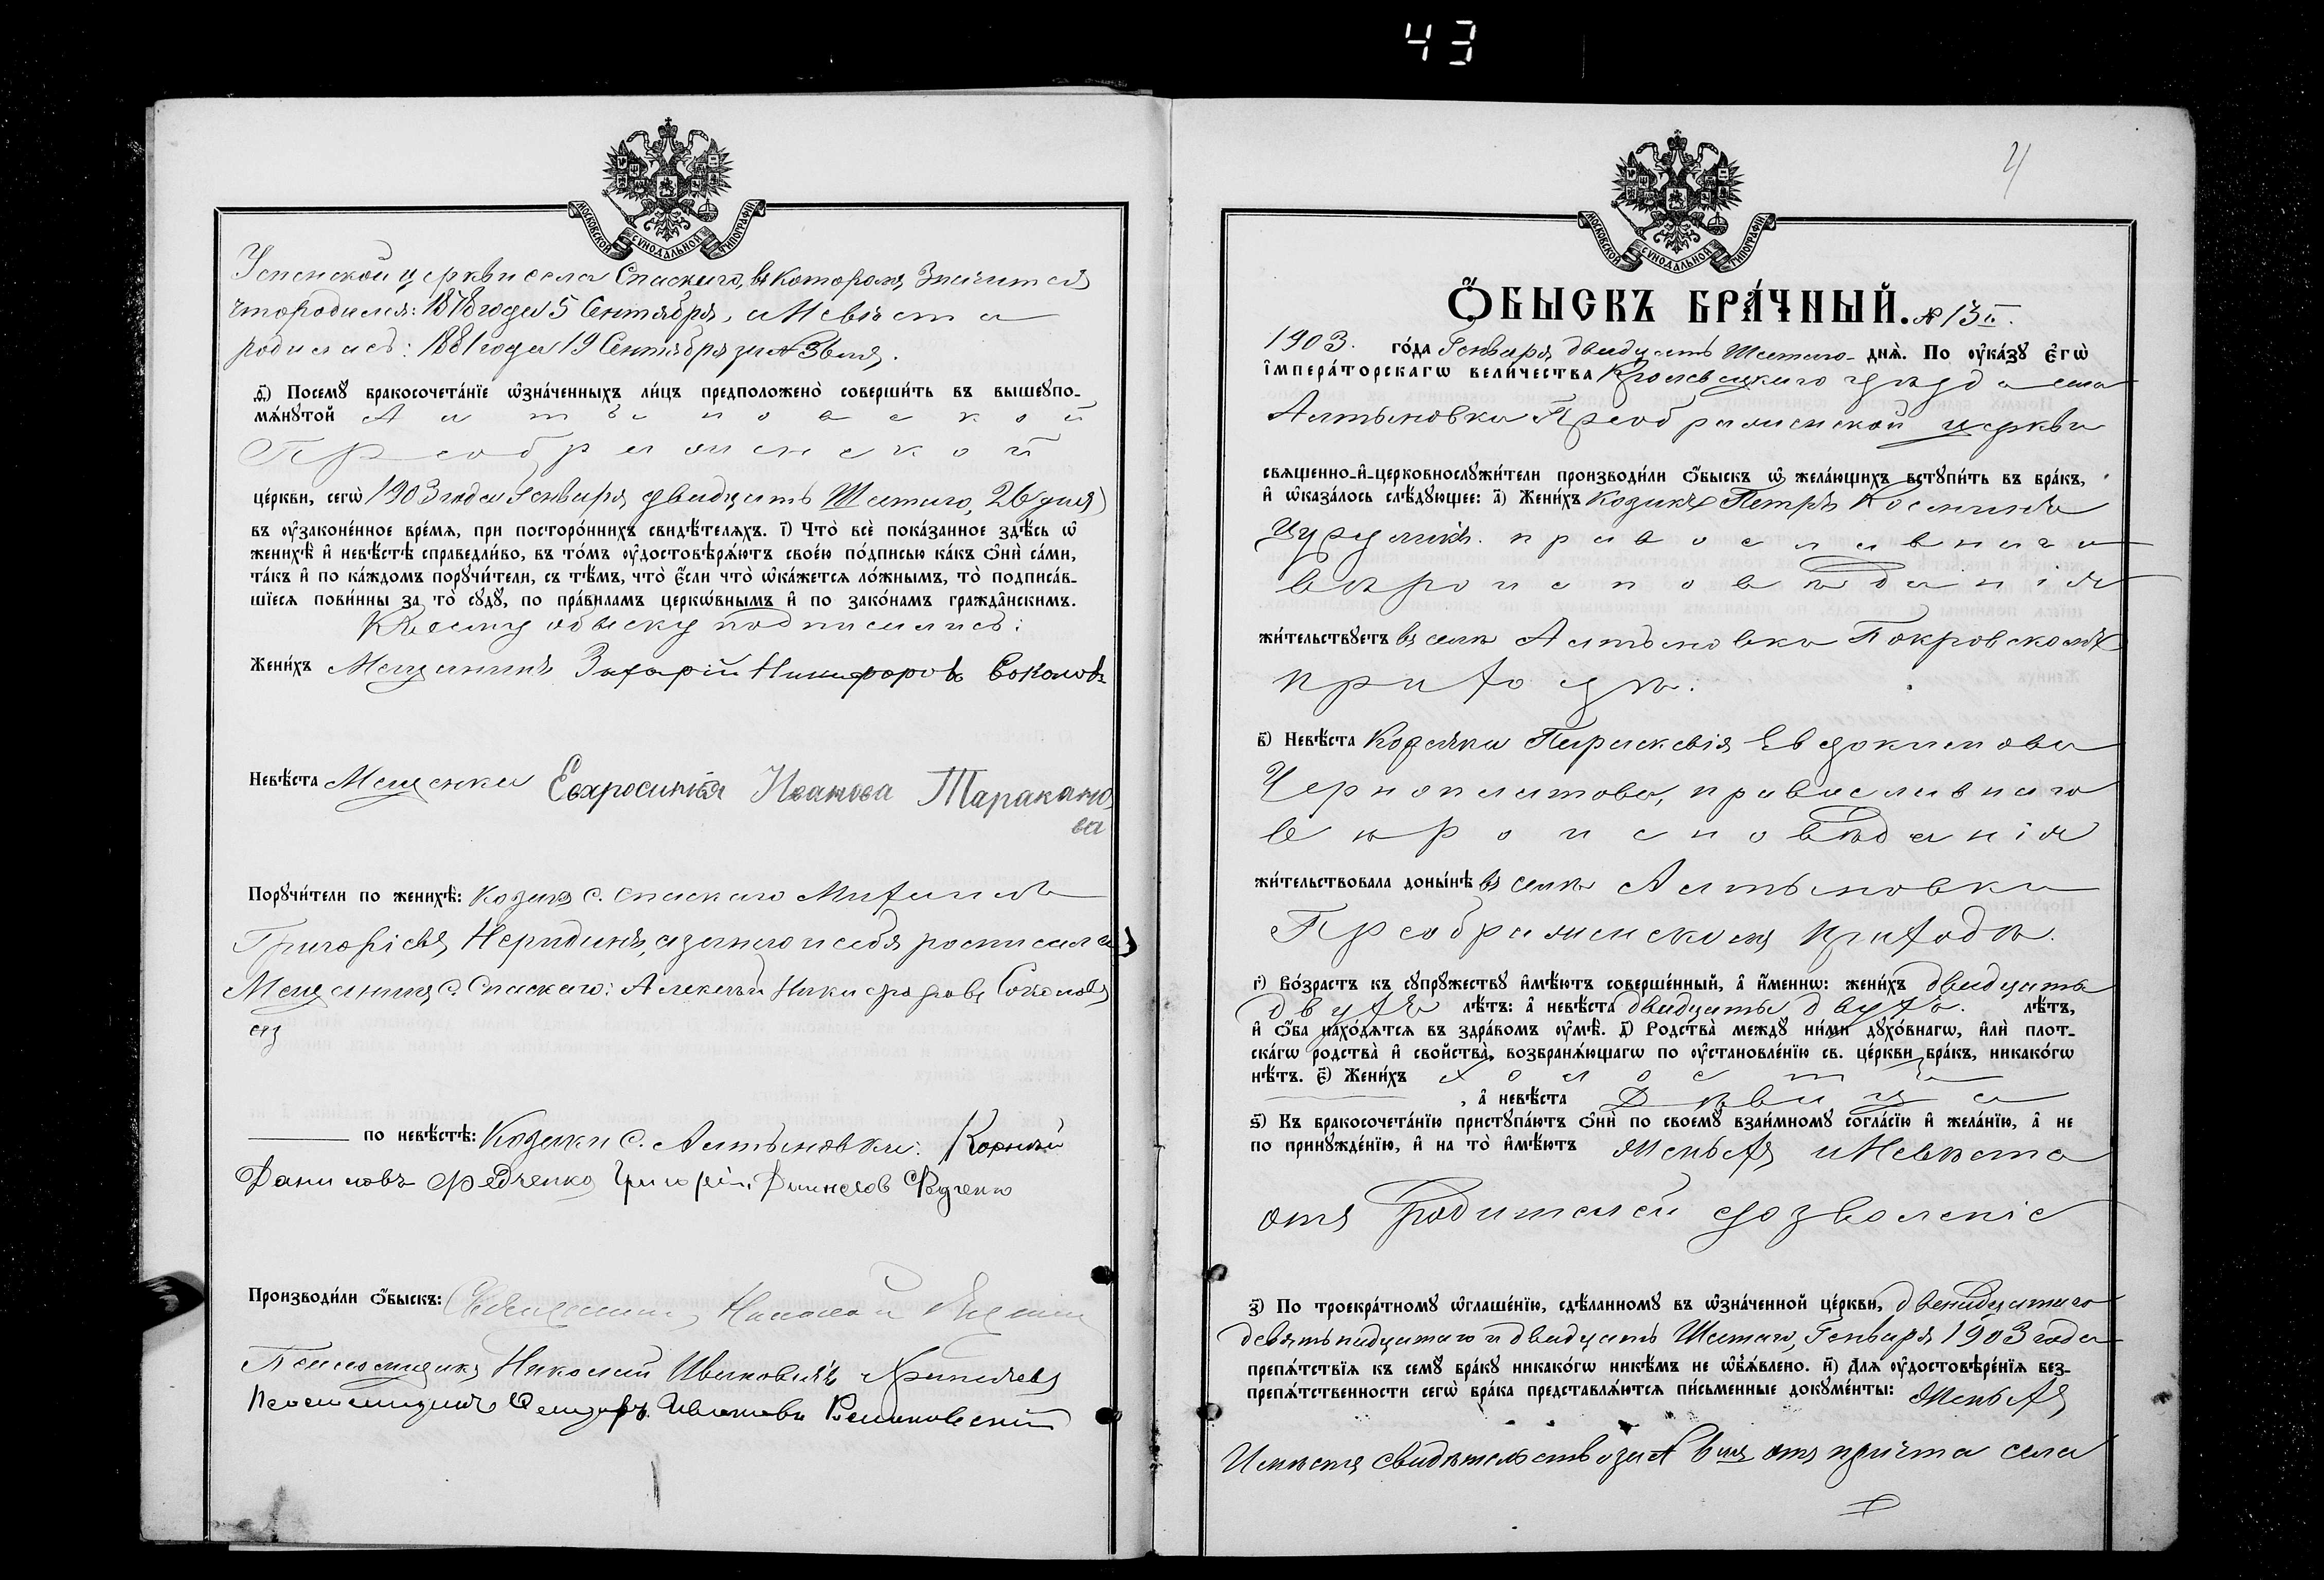 43
МОСКОВСКОЙ СѴНОДАЛЬНОЙ ТИПОГРАФІИ
Успенской церкви села Спаскаго, въ которомъ значится
что родился: 1878 года 5 Сентября, а Невѣста
родилась: 1881 года 19 Сентября за № 3 вмъ.
ѳ҃) Посемꙋ бракосочета́нїе ѡ҆зна́ченныхъ ли́цъ предположено̀ соверши́ть въ вышеꙋпо-
мѧ́нꙋтой Алтыновской
Преображенской
це́ркви, сегѡ̀ 1903 года Генваря двадцать Шестаго, 26 дня
въ ᲂу҆законе́нное вре́мѧ, при посторо́ннихъ свидѣ́телѧхъ. і҃) Что̀ всѐ пока́занное здѣ́сь ѡ҆
женихѣ̀ и҆ невѣ́стѣ справедли́во, въ то́мъ ᲂу҆достовѣрѧ́ютъ свое́ю по́дписью ка́къ ѻ҆нѝ са́ми,
та́къ и҆ по ка́ждомъ порꙋчи́тели, съ тѣ́мъ, что̀ є҆́сли что̀ ѡ҆ка́жетсѧ ло́жнымъ, то̀ подписа́в-
шїесѧ пови́нны за то̀ сꙋдꙋ̀, по пра́виламъ церкѡ́внымъ и҆ по зако́намъ гражда̂нскимъ.
К сему обыску подписались:
Жени́хъ Мещанинъ Захарій Никифоровъ Соколовъ
Невѣ́ста Мещанка Евхросинія Иванова Таракано
ва
Порꙋчи́тели по женихѣ̀: Козакъ с. Спаскаго Михаилъ
Григоріевъ а за него и себя росписался
Мещанинъ с. Спаскаго: Алексѣй Никифоровъ Соколовъ
по невѣ́стѣ: Козаки с. Алтыновки: Корнѣй
Даниловъ Федченко Григорій Даниловъ Федченко
Производи́ли ѻ҆́быскъ: Священникъ Николай
Псаломщикъ Николай Ивановичъ
Псаломщикъ Ивановъ
4
МОСКОВСКОЙ СѴНОДАЛЬНОЙ ТИПОГРАФІИ
Ѻ҆́БЫСКЪ БРА́ЧНЫЙ. № 13й.
1903. го́да Генваря двадцать Шестаго дня̀. По ᲂу҆ка́зꙋ є҆гѡ̀
і҆мпера́торскагѡ вели́чества Кролевецкаго уѣзда села
Алтыновки Преображенской церкви
свѧщенно-и҆-церковнослꙋжи́тели производи́ли ѻ҆́быскъ ѡ҆ жела́ющихъ встꙋпи́ть въ бра́къ,
и҆ ѡ҆каза́лось слѣ́дꙋющее: а҃) Жени́хъ Козакъ Петръ Косминъ
православнаго
вѣроисповѣданія
жи́тельствꙋетъ въ селѣ Алтыновкѣ Покровскомъ
приходѣ.
в҃) Невѣ́ста Козачка Параскевія Евдокимова
Чернопятова, православнаго
вѣроисповѣданія
жи́тельствовала доны́нѣ въ селѣ Алтыновкѣ
Преображенскомъ приходѣ.
г҃) Во́зрастъ къ сꙋпрꙋ́жествꙋ и҆мѣ́ютъ соверше́нный, а҆ и҆́менно: жени́хъ двадцать
двухъ лѣ́тъ: а҆ невѣ́ста двадцать двухъ. лѣ́тъ,
и҆ ѻ҆́ба нахо́дѧтсѧ въ здра́вомъ ᲂу҆мѣ̀. д҃) Родства̀ междꙋ̀ ни́ми дꙋхо́внагѡ, и҆лѝ плот-
ска́гѡ родства̀ и҆ сво́йства̀, возбранѧ́ющагѡ по ᲂу҆становле́нїю св. це́ркви бра́къ, никако́гѡ
нѣ́тъ. є҃) Жени́хъ холостъ
, а҆ невѣ́ста Дѣвица
ѕ҃) Къ бракосочета́нїю пристꙋпа́ютъ ѻ҆нѝ по своемꙋ̀ взаи́мномꙋ согла́сїю и҆ жела́нїю, а҆ не
по принꙋжде́нїю, и҆ на то̀ и҆мѣ́ютъ Женихъ и Невѣста
отъ Родителей дозволеніе
з҃) По троекра́тномꙋ ѡ҆глаше́нїю, сдѣ́ланномꙋ въ ѡ҆зна́ченной це́ркви, двенадцатаго
девятьнадцатаго и двадцать Шестаго, Генваря 1903 года
препѧ́тствїѧ къ семꙋ̀ бра́кꙋ никако́гѡ никѣ́мъ не ѡ҆б̾ѧ́влено. и҃) Длѧ ᲂу҆достовѣре́нїѧ без-
препѧ́тственности сегѡ̀ бра́ка представлѧ́ютсѧ пи́сьменные докꙋме́нты: Женихъ
Имѣетъ свидѣтельство за № 6мъ отъ причта села